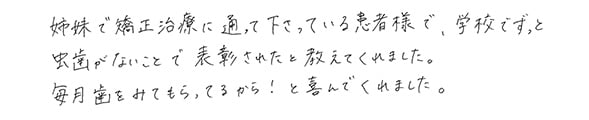 姉妹で矯正治療に通って下さっている患者様で、学校でずっと
虫歯がないことで表彰されたと教えてくれました。
毎月歯をみてもらってるから！と喜んでくれました。